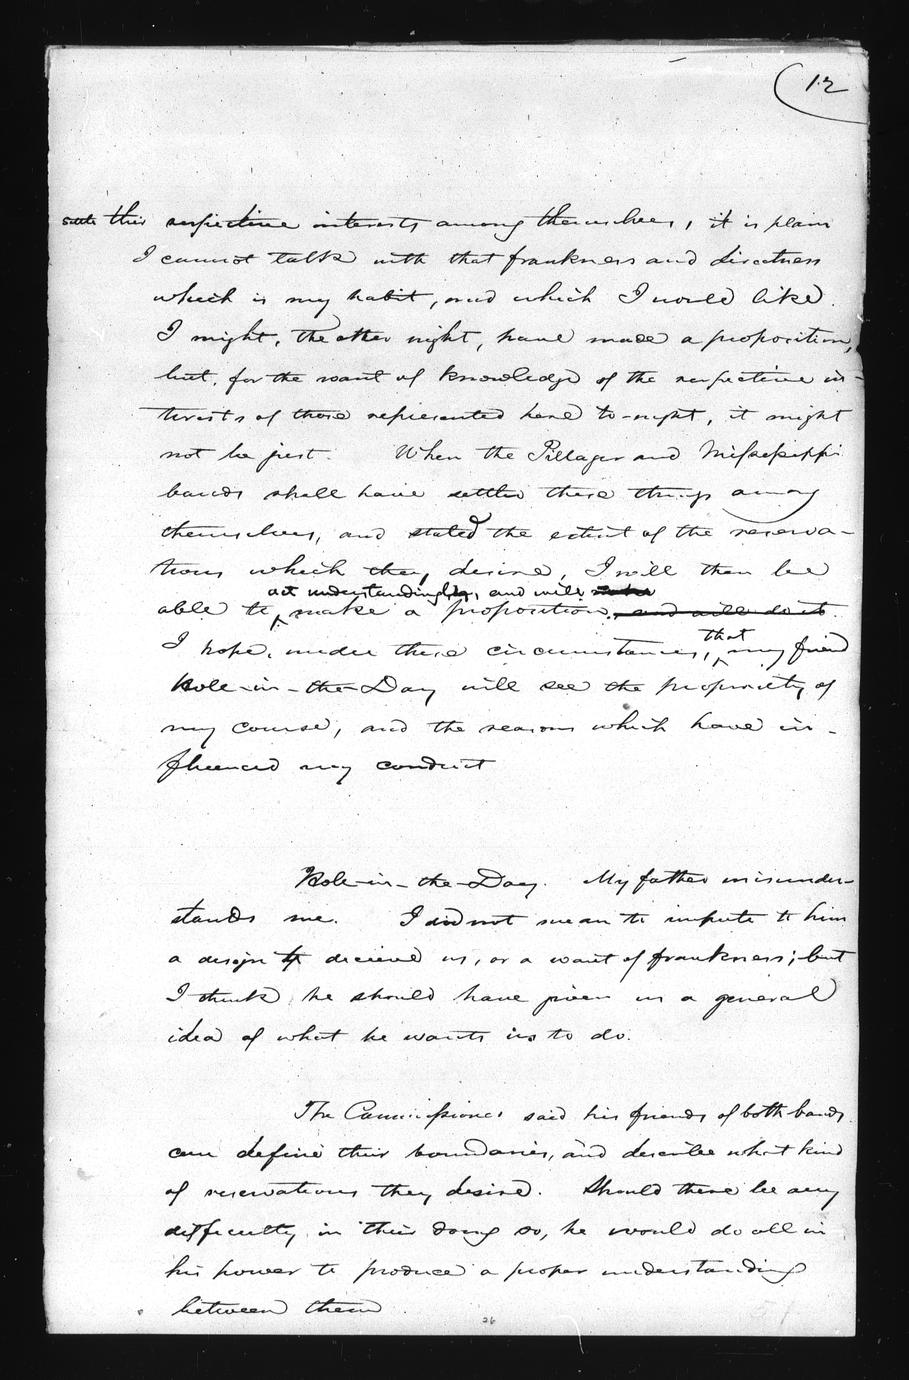 12
settle their respective interests among themselves, it is plain
I cannot talk with that frankness and directness
which is my habit, and which I would like.
I might, the other night, have made a proposition,
but, for the want of knowledge of the respective in-
terests of those represented here to-night, it might
not be just. When the Pillager and Mississippi
bands shall have settled these things among
themselves, and stated the extent of the reserva-
tions which they desire, I will then be
act understandingly, and will make
able to make a proposition, and will do it.
that
I hope, under these circumstances, my friend
Hole-in-the-Day will see the propriety of
my course, and the reasons which have in-
fluenced my conduct
Hole-in-the-Day. My father misunder-
stands me. I did not mean to impute to him
a design to deceive us, or a want of frankness; but
I think he should have given us a general
idea of what he wants us to do.
The Commissioner said his friends of both bands
can define their boundaries, and describe what kind
of reservations they desire. Should there be any
difficulty in their doing so, he would do all in
his power to produce a proper understanding
between them.
26
51